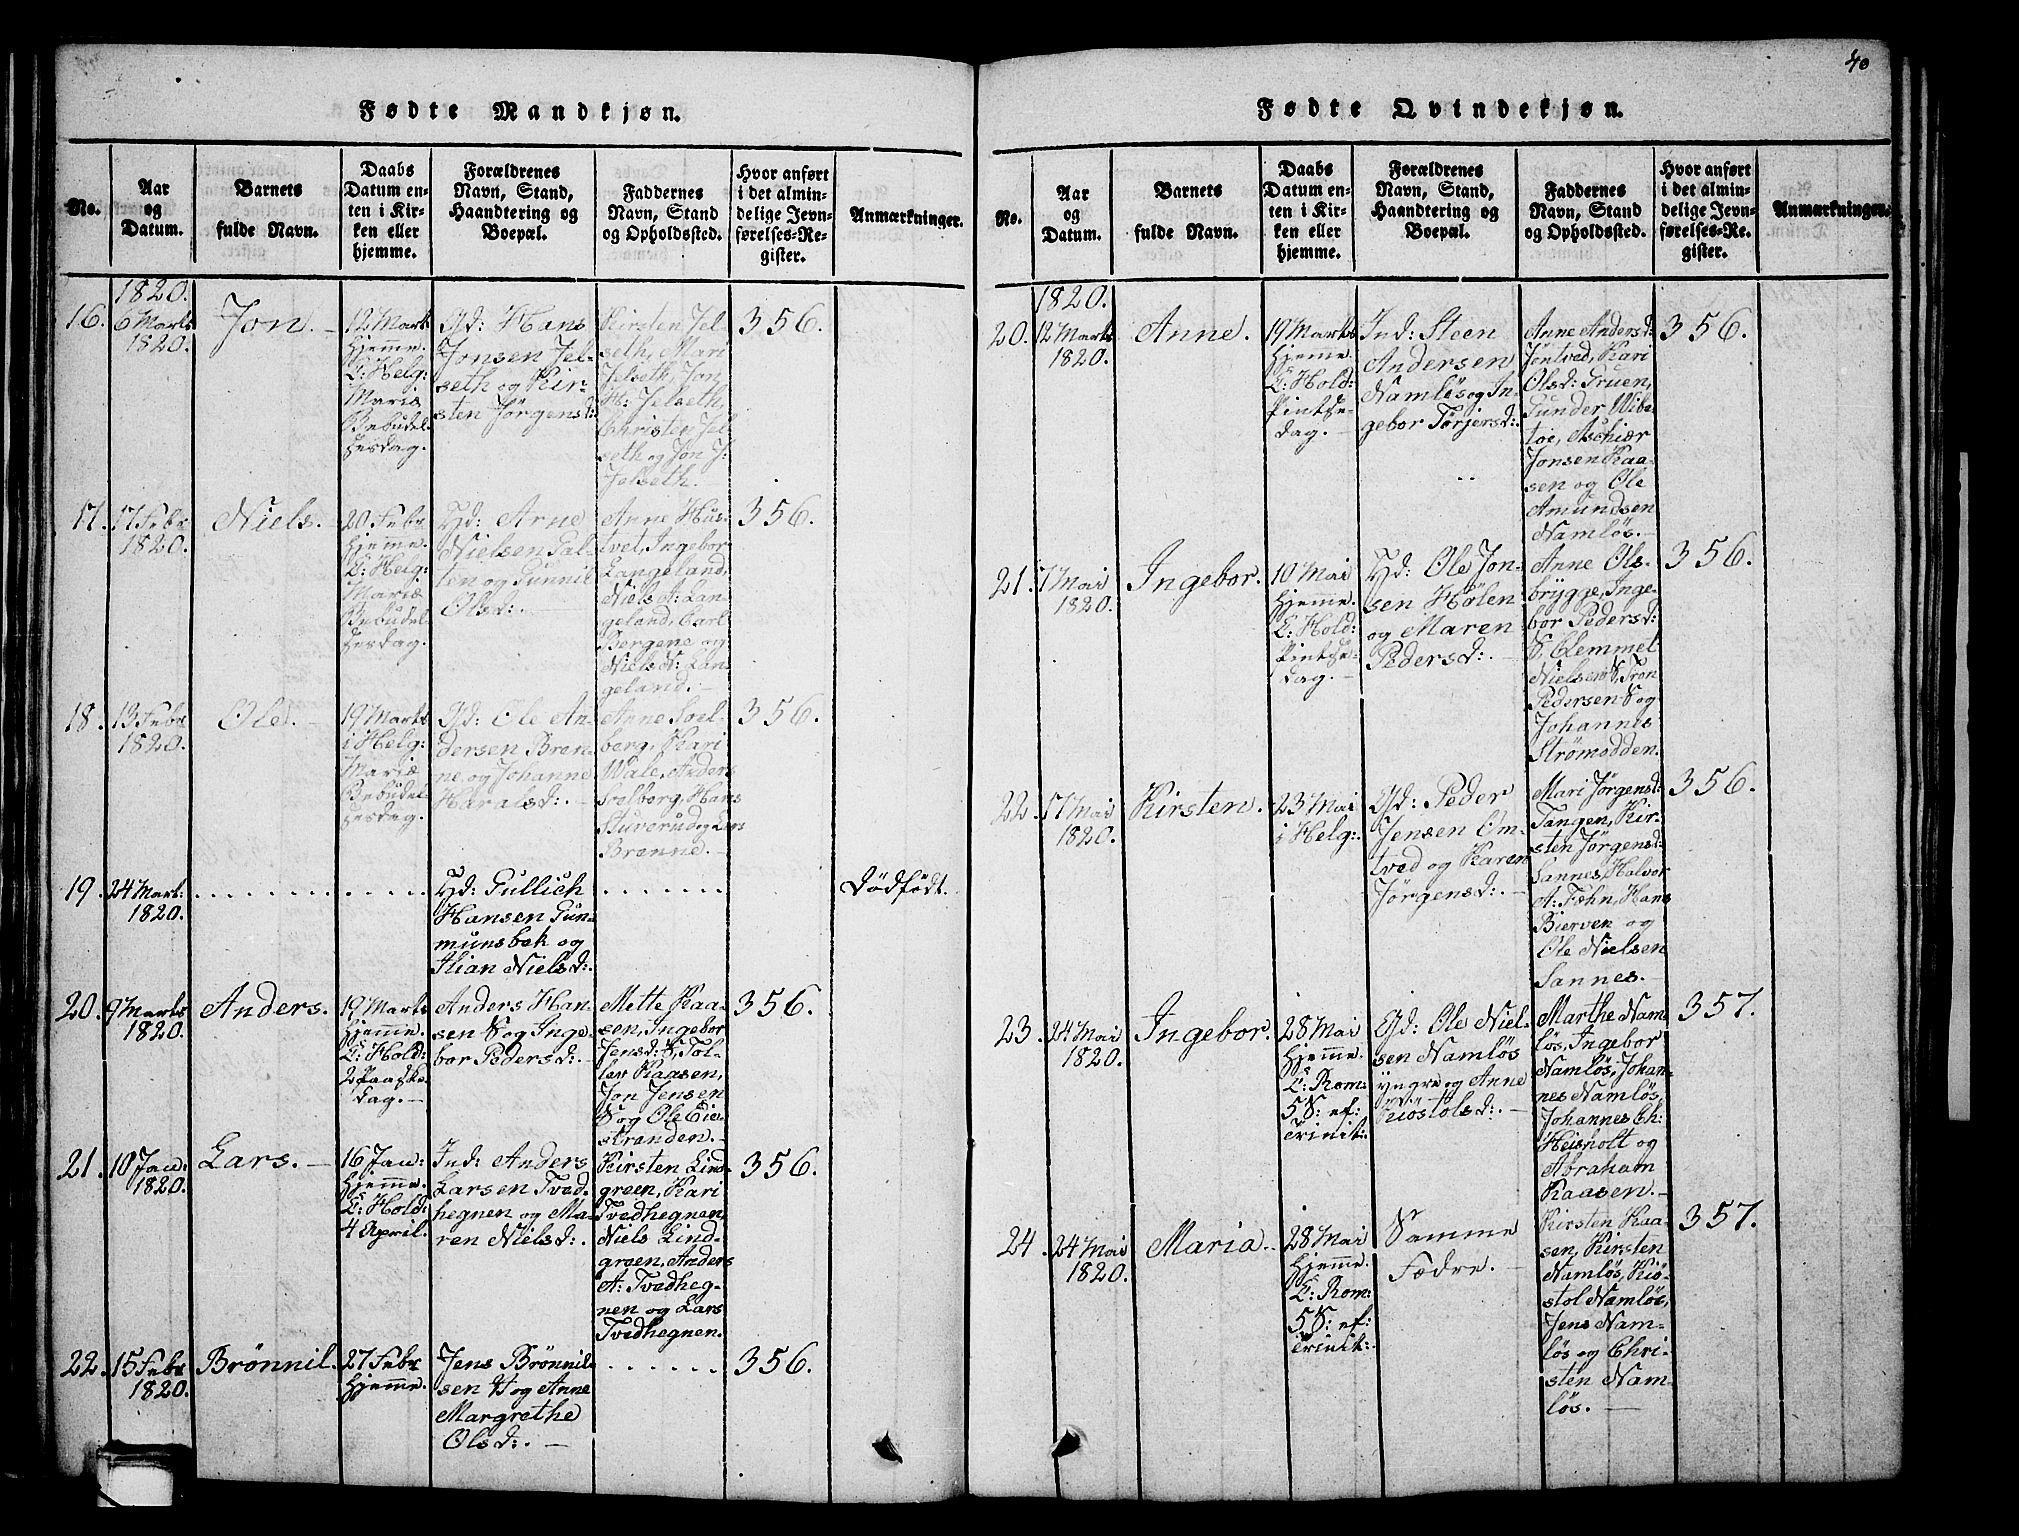 40
Fødte Mandkjøn.
No.
Aar
og
Datum.
Barnets
fulde Navn.
Daabs
Datum en-
ten i Kir-
ken eller
hjemme.
Forældrenes
Navn, Stand,
Haandtering og
Boepæl.
Faddernes
Navn, Stand
og Opholdssted.
Hvor anført
i det almin-
delige Jevn-
førelses-Re-
gister.
Anmærkninger.
16.
1820.
6 Marts
1820.
Jon. –
12 Mart
hjemme.
C: Helg:
Mariæ
Bebudel-
sesdag.
Gd: Hans
Jonsen Jel-
seth og Kir-
sten Jørgensd:
Kirsten Jel-
seth, Mari
Jelseth, Jon
H: Jelseth,
Christen Jel-
seth og Jon J:
Jelseth.
356.
17.
17 Febr
1820.
Niels. –
20 Febr
hjemme.
C: Helg:
Mariæ
Bebudel-
sesdag.
Hd: Arne
Nielsen Tal-
ten og Gunnil
Olsd: –
Anne Hus-
tvet, Ingebor
Langeland,
Niels A: Lan-
geland, Carl
Bergene og
Niels N: Lan-
geland. –
356.
18.
13 Febr
1820.
Ole. –
19 Marts
i Helg:
Mariæ
Bebudel-
sesdag.
Gd: Ole An-
dersen Bren-
ne og Johanne
Haralsd: –
Anne Soel-
berg, Kari
Wale, Anders
Soelberg, Hans
Stuverud og Lars
Brenne. –
356.
19.
24 Mart:
1820.
Hd: Gullich
Hansen Gun-
munsbek og
Ilian Nielsd:
Dödfödt.
20.
9 Marts
1820.
Anders.
19 Marts
hjemme.
C: Hold:
2 Paaske-
dag. –
Anders Han-
sen S og Inge-
bor Pedersd: –
Mette Kaa-
sen, Ingebor
Jensd: S, Tol-
lev Kaasen,
Jon Jensen
S og Ole Eie-
stranden. –
356.
21.
10 Jan:
1820.
Lars. –
16 Jan:
hjemme.
C: Hold:
4 April.
Ind: Anders
Larsen Tved-
hegnen og Ma-
ren Nielsd:
Kirsten Lind-
green, Kari
Tvedhegnen,
Niels Lind-
green, Anders
A: Tvedheg-
nen og Lars
Tvedhegnen.
356.
22.
15 Febr
1820.
Brønnil.
27 Febr
hjemme.
Jens Brønnil-
sen H og Anne
Margrethe
Olsd: –
356.
Fødte Qvindekjøn.
No.
Aar
og
Datum.
Barnets
fulde Navn.
Daabs
Datum en-
ten i Kir-
ken eller
hjemme.
Forældrenes
Navn, Stand,
Haandtering og
Boepæl.
Faddernes
Navn, Stand
og Opholdssted.
Hvor anført
i det almin-
delige Jevn-
førelses-Re-
gister.
Anmærkninger.
20.
1820.
12 Marts
1820.
Anne.
19 Marts
hjemme.
C: Hold:
Pintse-
dag. –
Ind: Steen
Andersen
Namløs og In-
gebor Torjersd:
Anne Andersd:
Jontved, Kari
Olsd: Gruen,
Gunder Wibe-
toe, Aschier
Jonsen Kaa-
sen og Ole
Amundsen
Namløs. –
356.
21.
7 Mai
1820.
Ingebor.
10 Mai
hjemme.
C: Hold:
Pintse-
dag. –
Hd: Ole Jon-
sen Holen
og Maren
Pedersd: –
Anne Ols-
brygge, Inge-
bor Pedersd:
S, Clemmet
Nielsen S, Tron
Pedersen S og
Johannes
Strømodden.
356.
22.
17 Mai
1820.
Kirsten.
23 Mai
i Helg:
Gd: Peder
Jensen Om-
tved og Karen
Jørgensd: –
Mari Jørgensd:
Tangen, Kir-
sten Jørgensd:
Sannes, Halvor
A: Fehn, Hans
Bierven og
Ole Nielsen
Sannes. –
356.
23.
24 Mai
1820.
Ingebor.
28 Mai
hjemme.
C: Rom:
5 S: ef:
Trinit:
Gd: Ole Niel-
sen Namløs
yngre og Anne
Kiøstolsd: –
Marthe Nam-
løs, Ingebor
Namløs, Johan-
nes Namløs,
Johannes Ch:
Heisholt og
Abraham
Kaasen. –
357.
24.
24 Mai
1820.
Maria. –
28 Mai
hjemme.
C: Rom:
5 S: ef:
Trinit:
Samme
Fædre. –
Kirsten Kaa-
sen, Kirsten
Namløs, Kiø-
stol Namløs,
Jens Nam-
løs og Chri-
sten Nam-
løs. –
357.